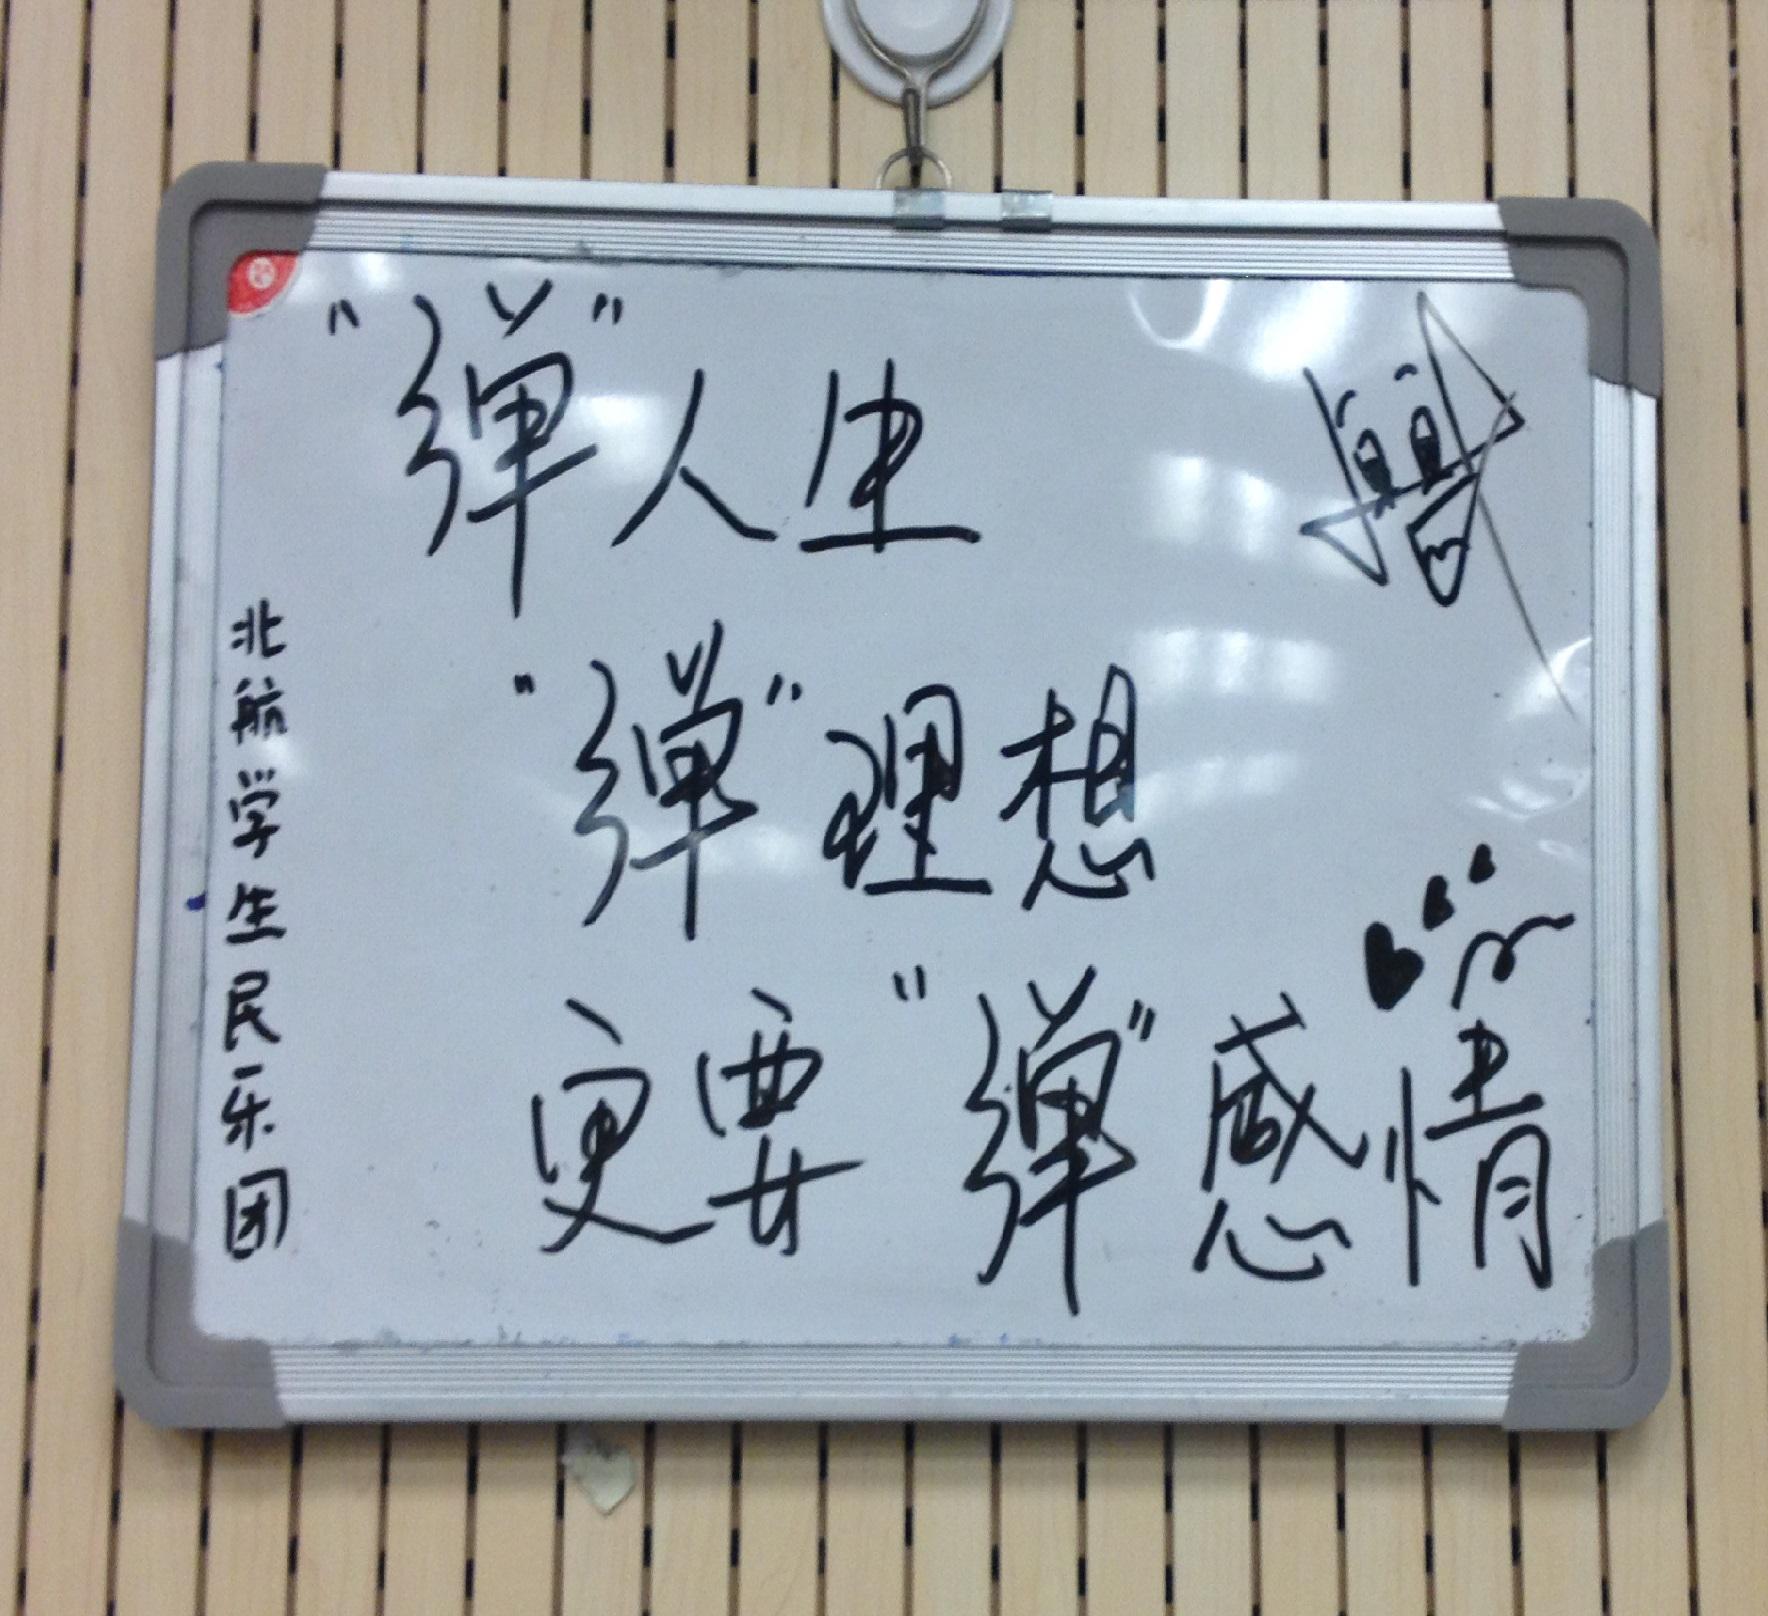 "弹"人生
"弹"理想
更要"弹"感情
北航学生民乐团